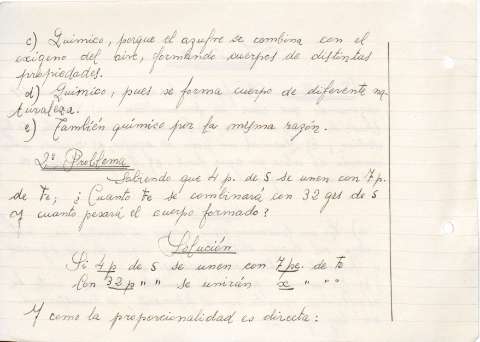 c) Químico, porque el azufre se combina con el
oxigeno del aire, formando cuerpos de distintas
propiedades.
d) Químico, pues se forma cuerpo de diferente na-
turaleza.
e) También químico por la misma razón.
2º Problema
Sabiendo que 4 p. de S se unen con 7 p.
de Fe; ¿Cuanto Fe se combinará con 32 grs de S
y cuanto pesará el cuerpo formado?
Solución
Si 4 p de S se unen con 7 pe. de Fe
Con 32 p " " se unirán x " " "
Y como la proporcionalidad es directa: